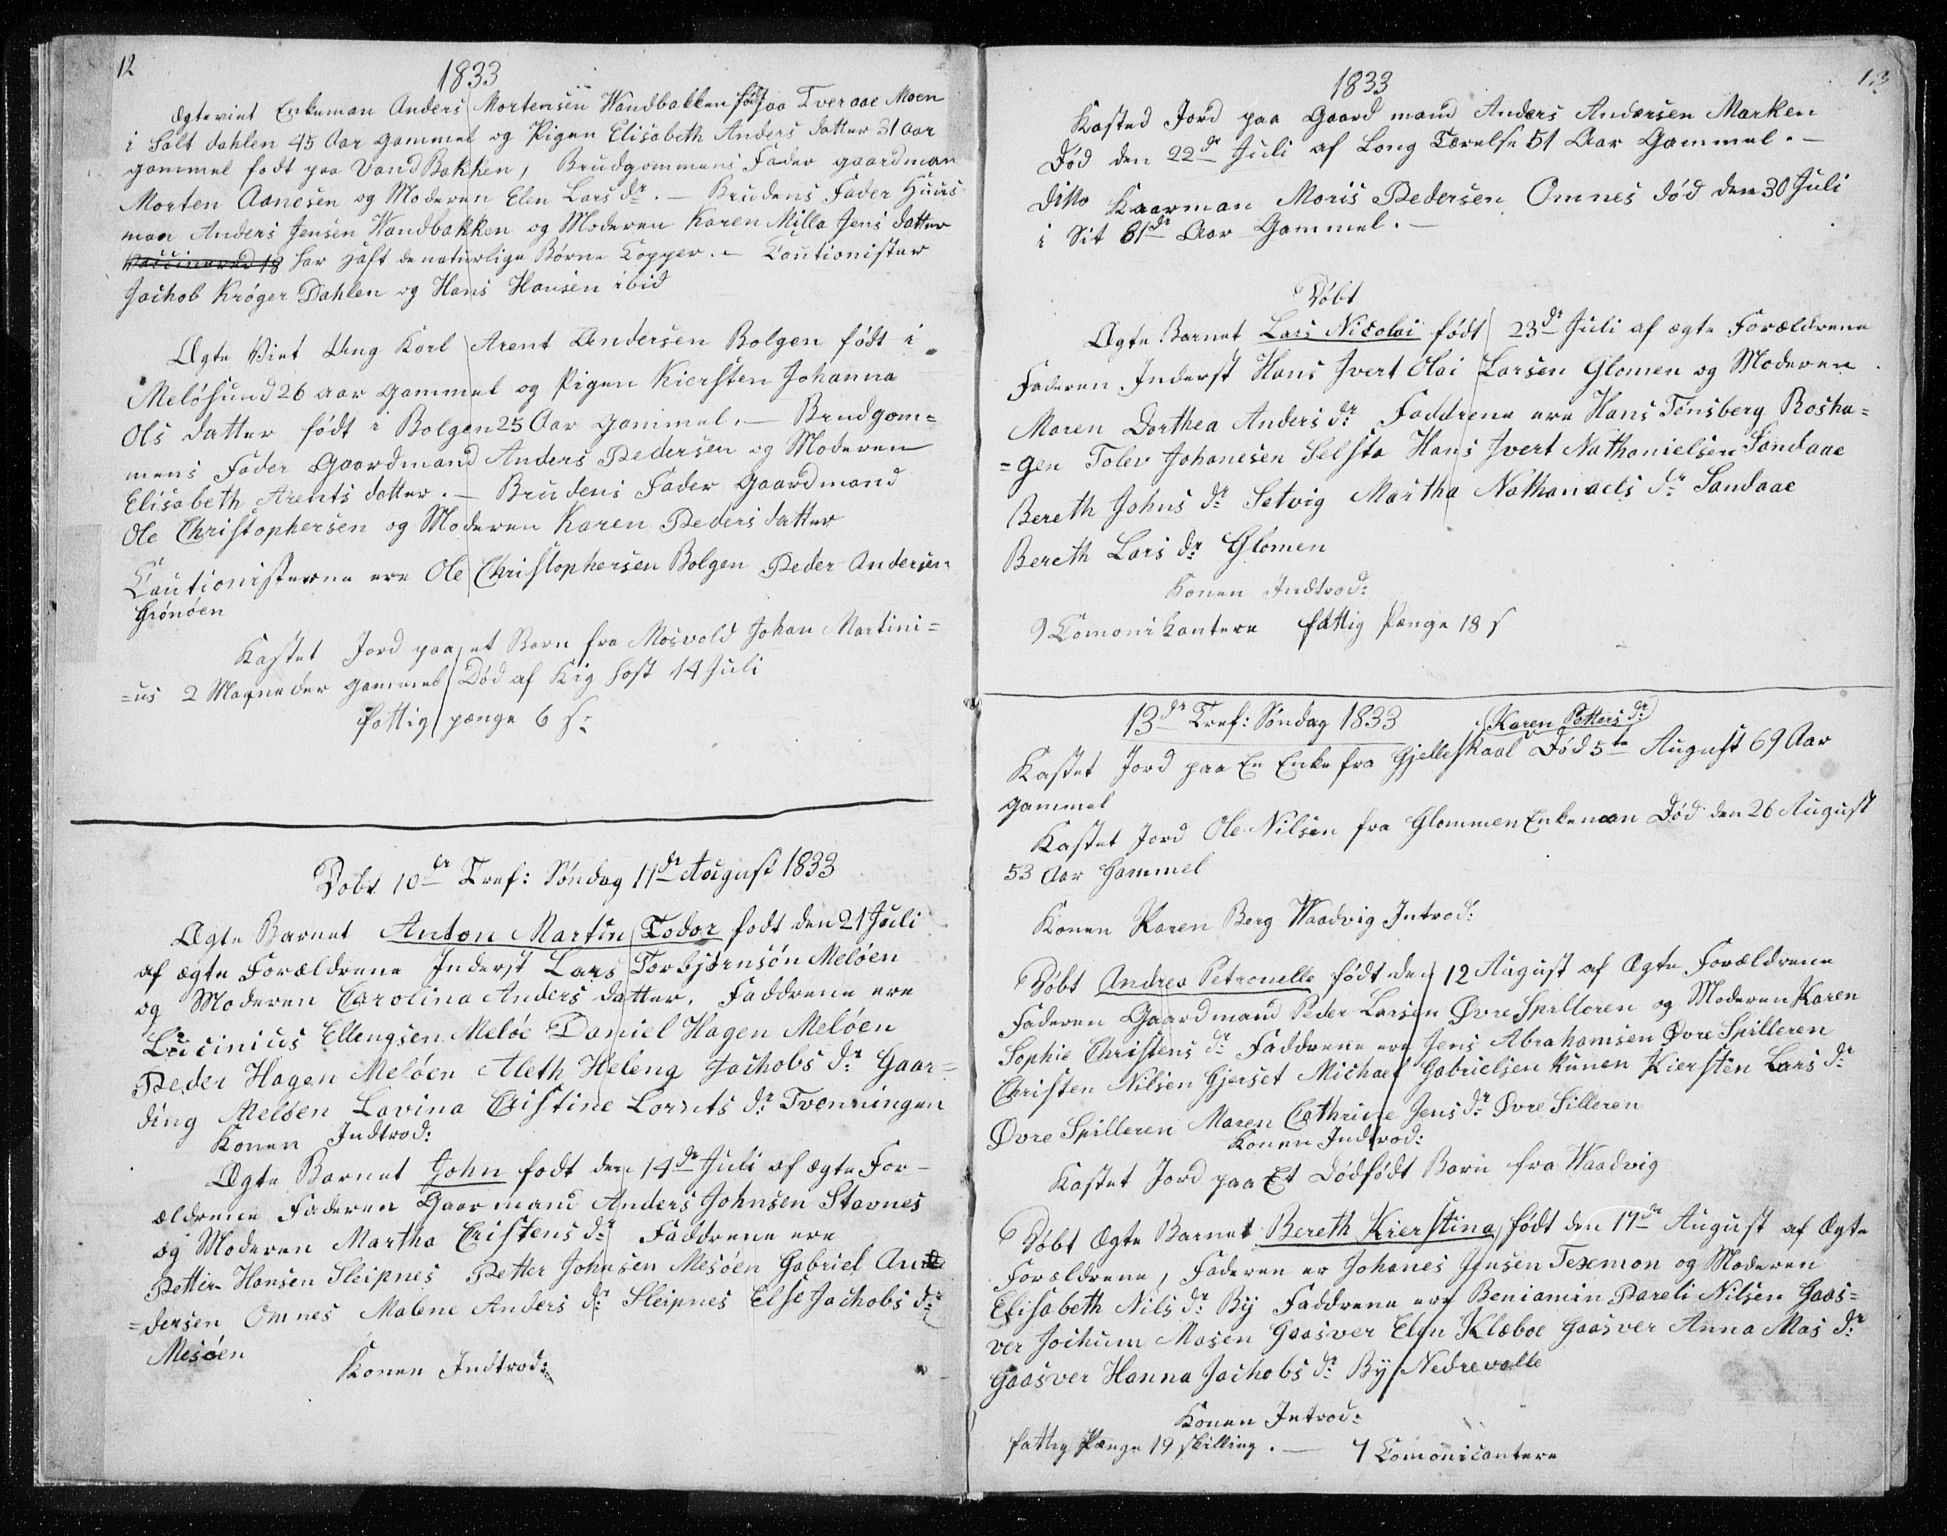 12
1833
Ægteviet Enkeman Anders Mortensen Vandbakken født paa Tveraae Moen
i Salt dahlen 45 Aar gammel og Pigen Elisabeth Anders datter 31 Aar
gammel født paa Vand Bakken, Brudgommens Fader gaardman
Morten Aanesen og Moderen Elen Lars dr. — Brudens Fader Huus
man Anders Jensen Vandbakken og Moderen Karen Milla Jens datter
Vaccinered 18 har haft de naturlige Børne Copper. — Cautionister
Jachob Krøger Dahlen og Hans Hansen ibid
Ægte Viet Ung Karl Arent Andersen Bolgen født i
Meløsund 26 aar gammel og Pigen Kiersten Johanna
Ols datter født i Bolgen 25 Aar gammel. — Brudgom=
mens Fader Gaardmand Anders Pedersen og Moderen
Elisabeth Arents datter. — Brudens Fader Gaardmand
Ole Christophersen og Moderen Karen Peders datter
Cautionisterne ere Ole Christophersen Bolgen Peder Andersen
Grønøen
Kastet Jord paa et Barn fra Mosvold Johan Martini=
=us 2 Maaneder gammel Død af Kig host 14 Juli
Fattig pænge 6 s:
Døbt 10de Tref: Søndag 11de August 1833
Ægte Barnet Anton Martin Todor født den 21 Juli
af ægte Forældrene Inderst Lars Torbjørnsøn Meløen
og Moderen Carolina Anders datter. Faddrene ere
Lucinius Ellengsen Meløe Daniel Hagen Meløen
Peder Hagen Meløen Aleth Helena Jachobs dr. Gaar=
ding Meløen Lovina Cristine Lornts dr. Tvenningen
Konen Indtrod:
Ægte Barnet John født den 14de Juli af ægte For-
ældrene Faderen Gaarmand Anders Johnsen Stavnes
og Moderen Martha Cristens dr. Faddrene ere
Petter Hansen Sleipnes Petter Johnsen Mesøen Gabriel An
=dersen Omnes Malene Anders dr. Sleipnes Else Jachobs dr.
Mesøen
Konen Indtrod:
13
1833
Kasted Jord paa Gaard mand Anders Andersen Marken
Død den 22de Juli af Long Tærelse 51 Aar Gammel. —
ditto Kaarman Moris Pedersen Omnes død den 30 Juli
i Sit 81de Aar Gammel. —
Døbt
Ægte Barnet Lars Nicolai født 23de Juli af ægte Forældrene
Faderen Inderst Hans Ivert Olai Larsen Glomen og Moderen
Maren Dorthea Anders dr. Faddrene ere Hans Tønsberg Rosha=
=gen Tolev Johanesen Selstø Hans Ivert Nathanielsen Sandaae
Bereth Johns dr. Setvig Martha Nathanaels dr. Sandaae
Bereth Lars dr. Glomen
Konen Indtrod:
9 Comonikantere fattig Pænge 18 s
13de Tref: Søndag 1833 Karen Petters dr.
Kastet Jord paa En Enke fra Gjelleskaal Død 5te August 69 Aar
gammel
Kastet Jord Ole Nilsen fra Glommen Enkeman Død den 26 August
53 Aar Gammel
Konen Karen Berg Waadvig Introd:
Døbt Andrea Petronelle født den 12 August af Ægte Forældrene
Faderen Gaardmand Peder Larsen Øvre Spilleren og Moderen Karen
Sophie Christens dr. Faddrene ere Jens Abrahamsen Øvre Spilleren
Christen Nilsen Gjerset Michael Gabrielsen Kunen Kiersten Lars dr.
Øvre Spilleren Maren Cathrine Jens dr. Øvre Silleren
Konen Indtrod:
Kastet Jord paa Et Dødfødt Barn fra Waadvig
Døbt Ægte Barnet Bereth Kierstina født den 17de August af Ægte
Forældrene, Faderen er Johanes Jensen Texmon og Moderen
Elisabeth Nils dr. By Faddrene ere Beniamin Pareli Nilsen Gaas=
ver Jochum Masen Gaasver Elen Klæboe Gaasver Anna Mas dr.
Gaasver Hanna Jachobs dr. By Nedrevalle
Konen Introd:
fattig Pænge 19 skilling. — 7 Comonicantere